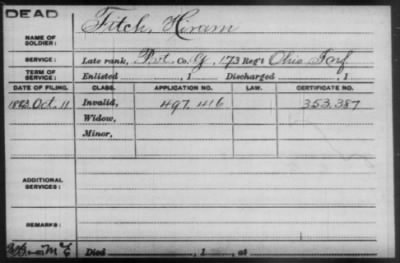 DEAD
NAME OF SOLDIER: Fitch, Hiram
SERVICE: Late rank, Pvt. Co. G, 173 Reg't Ohio Inf
TERM OF SERVICE: Enlisted , 1 Discharged , 1
DATE OF FILING. CLASS. APPLICATION NO. LAW. CERTIFICATE NO.
1883 Oct. 11 Invalid, 497,416 353,387
Widow,
Minor,
ADDITIONAL SERVICES:
REMARKS:
Died , 1 , at